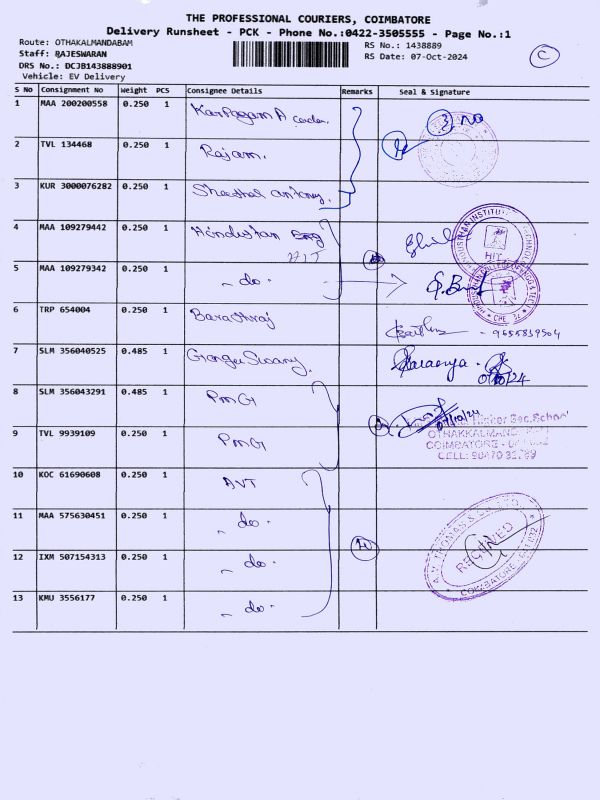 THE PROFESSIONAL COURIERS, COIMBATORE
Delivery Runsheet - PCK - Phone No.:0422-3505555 - Page No.:1
Route: OTHAKALMANDABAM
RS No.: 1438889
Staff: RAJESWARAN
RS Date: 07-Oct-2024
DRS No.: DCJB143888901
Vehicle: EV Delivery
C
S No Consignment No Weight PCS Consignee Details Remarks Seal & Signature
1 MAA 200200558 0.250 1 Karpagam A
2 TVL 134468 0.250 1 Rajam.
3 KUR 3000076282 0.250 1
4 MAA 109279442 0.250 1 Hindusthan
HIT
5 MAA 109279342 0.250 1 - do -
6 TRP 654004 0.250 1 - 9655839504
7 SLM 356040525 0.485 1
07/10/24
8 SLM 356043291 0.485 1 PMG
07/10/24
Higher Sec.School
9 TVL 9939109 0.250 1 PMG
OTHAKKALMAND
COIMBATORE -
CELL: 90470
10 KOC 61690608 0.250 1 AVT
11 MAA 575630451 0.250 1 - do -
RECEIVED
12 IXM 507154313 0.250 1 - do -
COIMBATORE
13 KMU 3556177 0.250 1 - do -